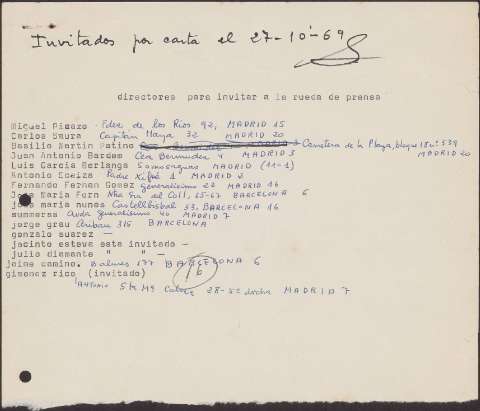 Invitados por carta el 27-10-69
directores para invitar a la rueda de prensa
Miguel Picazo Fdez de los Rios 92, MADRID 15
Carlos Saura Capitán Haya 32 MADRID 20
Basilio Martin Patino MADRID 3 Carretera de la Playa, bloque 18 nº 539
Juan Antonio Bardem Cea Bermudez 4 MADRID 3 MADRID 20
Luis Garcia Berlanga Somosaguas MADRID (11-1)
Antonio Eceiza Padre Xifré 1 MADRID 2
Fernando Fernan Gomez Generalísimo 22 MADRID 16
José Maria Forn Ntra Sra del Coll, 65-67 BARCELONA 6
jose maria nunes Castellbisbal 33. BARCELONA 16
summerss Avda generalísimo 40 MADRID 7
jorge grau Aribau 316 BARCELONA
gonzalo suarez —
jacinto esteva esta invitado —
julio diamante " " —
jaime camino. Balmes 177 BARCELONA 6
gimenez rico (invitado) 16
ANTONIO Sta Mª 28-5º dcha MADRID 7